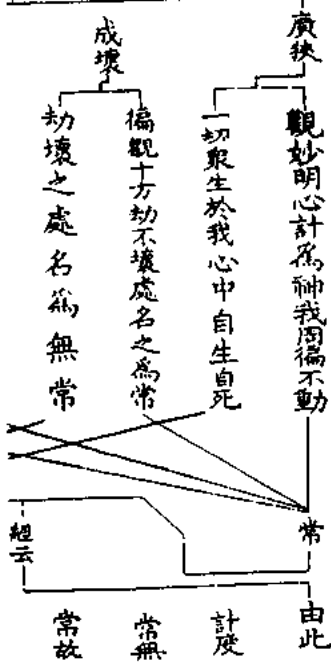 廣狹
觀妙明心計爲神我周徧不動
一切眾生於我心中自生自死
成壞
徧觀十方劫不壞處名之爲常
劫壞之處名爲無常
常
由此
計度
常無
常故
經云